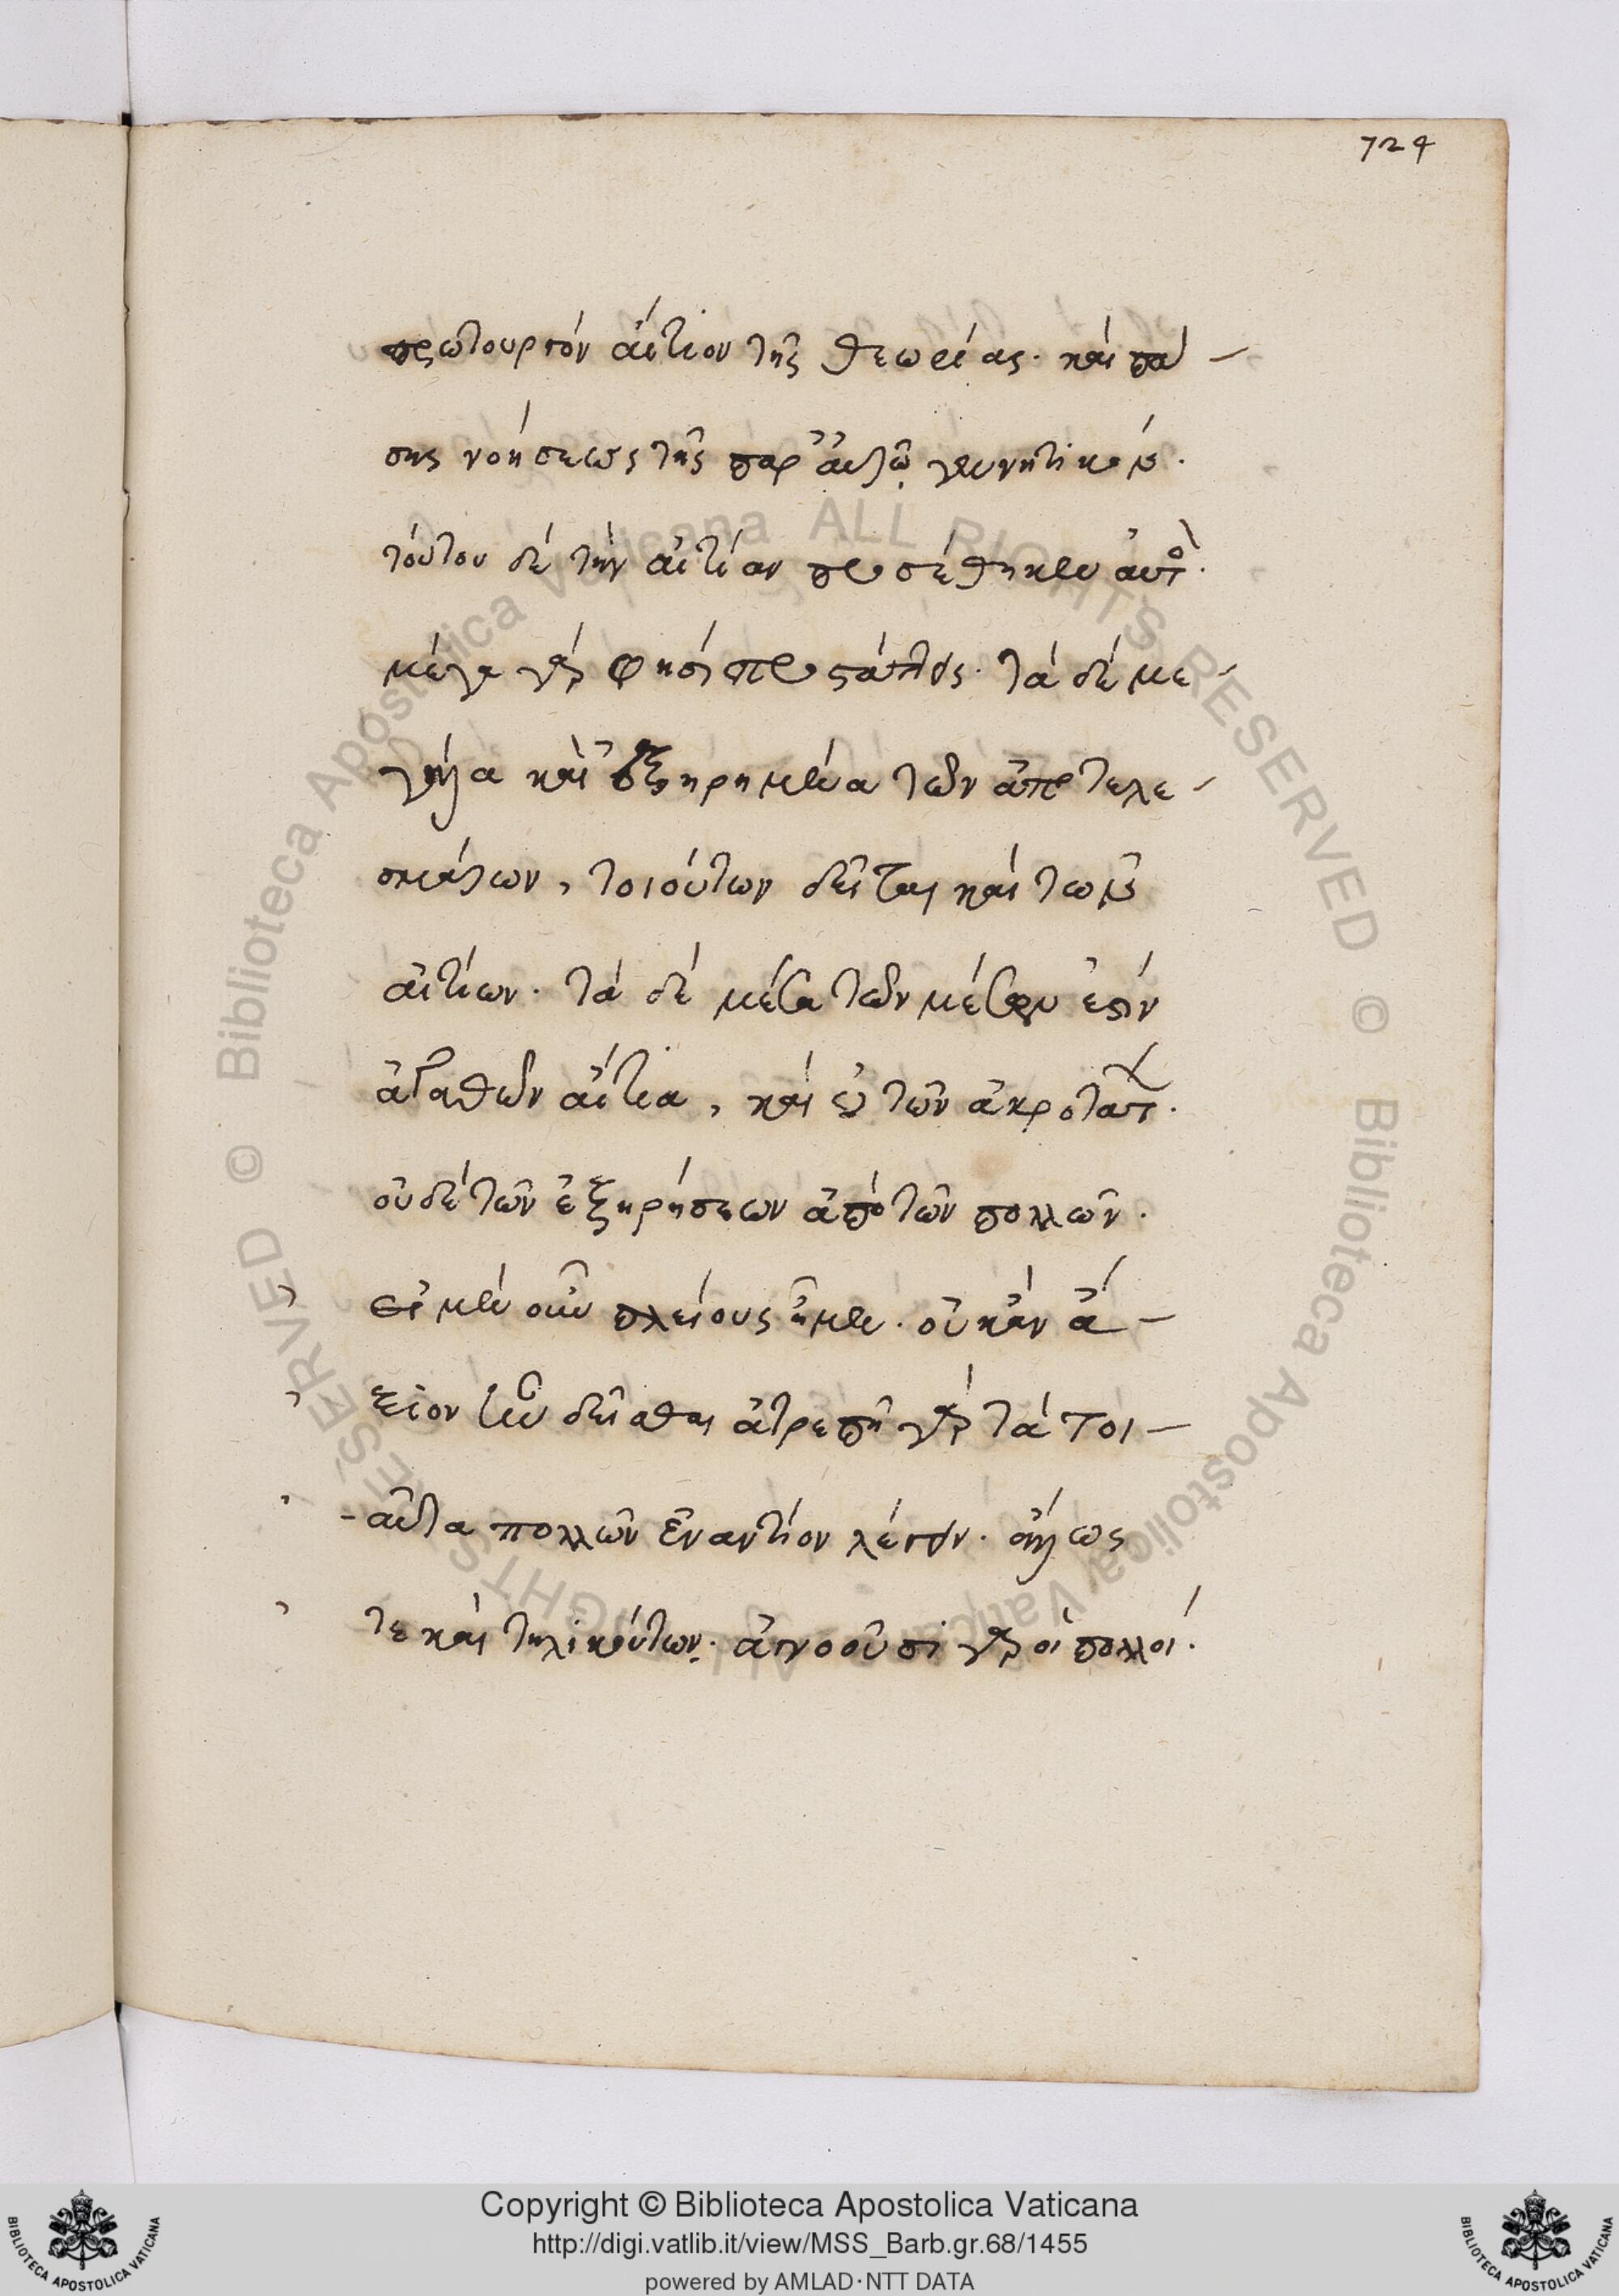 724
πρωτουργὸν αἴτιον τῆς θεωρίας. καὶ πά-
σης νοήσεως τῆς παρ' αὐτῷ γεννητικόν.
τούτου δὲ τὴν αἰτίαν προσέθηκεν αὐτὸς.
μέγα γάρ φησι προστάττεις. τὰ δὲ με-
γάλα καὶ ἐξηρημένα τῶν ἀποτελε-
σμάτων, τοιούτων δεῖται καὶ τῶν
αἰτίων. τὰ δὲ μέσα τῶν μέσων ἐστὶν
ἀγαθῶν αἴτια, καὶ οὐ τῶν ἀκροτάτων.
οὐδὲ τῶν ἐξηρήσεων ἀπὸ τῶν πολλῶν.
εἰ μὲν οὖν πλείους ἦμεν. οὐκ ἂν ἄ-
ξιον ἦν δεῖσθαι ἀτρεπῆ γὰρ τὰ τοι-
-αῦτα πολλῶν ἐναντίον λέγειν. ἄλλως
τε καὶ τηλικούτῳ. ἀγνοοῦσι γὰρ οἱ πολλοί.
Copyright © Biblioteca Apostolica Vaticana
http://digi.vatlib.it/view/MSS_Barb.gr.68/1455
powered by AMLAD·NTT DATA
BIBLIOTECA APOSTOLICA VATICANA
BIBLIOTECA APOSTOLICA VATICANA
© Biblioteca Apostolica Vaticana ALL RIGHTS RESERVED © Biblioteca Apostolica Vaticana ALL RIGHTS RESERVED